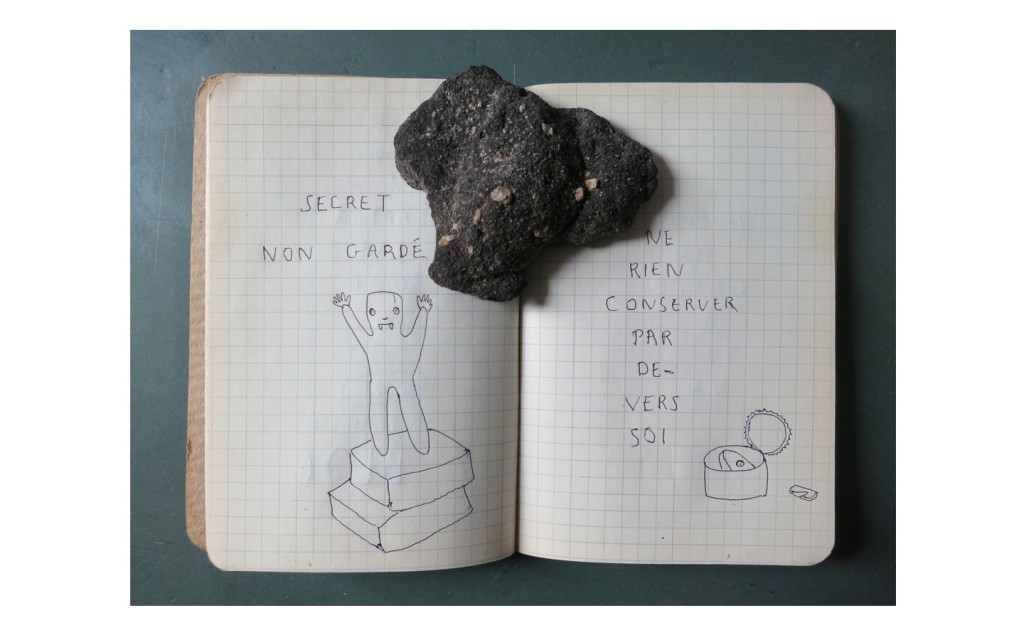 SECRET
NON GARDÉ
NE
RIEN
CONSERVER
PAR
DE-
VERS
SOI